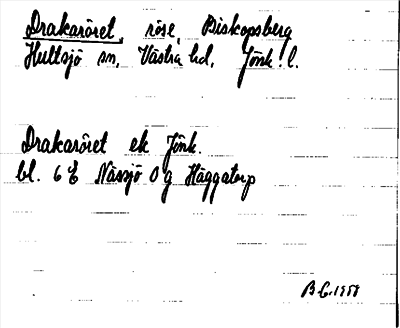 Drakaröret, röse, Biskopsberg
Hultsjö sn, Västra hd, Jönk. l.
Drakaröret ek Jönk.
bl. 6 E Nässjö 0 g Häggatorp
B.C. 1958